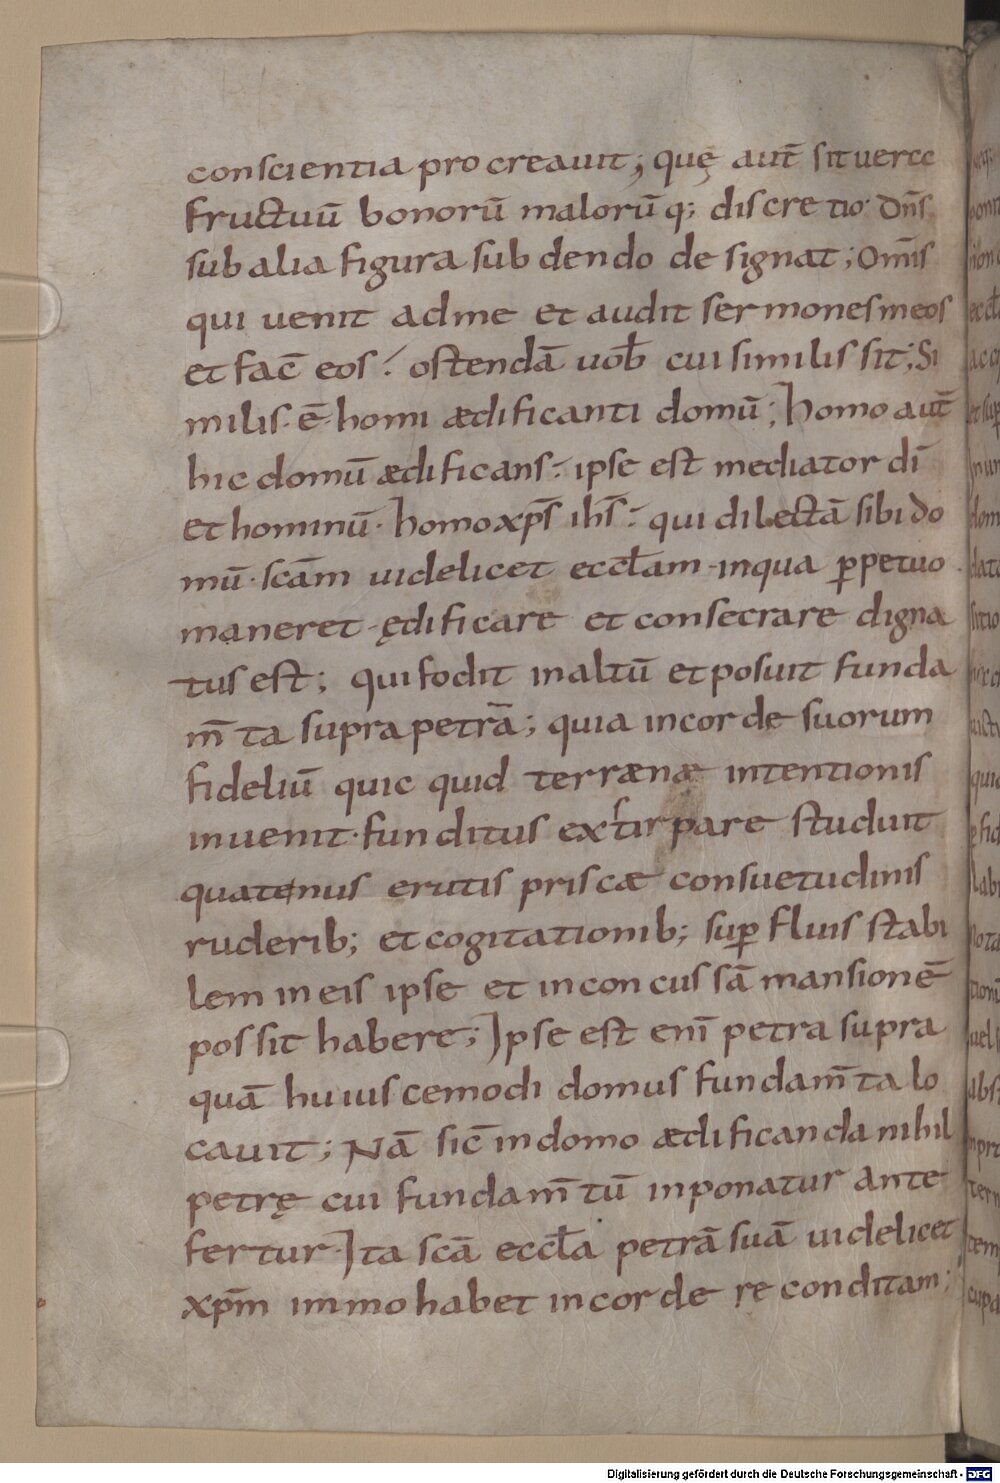 conscientia procreauit; quę aut̄ sit uerae
fructuū bonorū malorūq; discretio· Dn̄s
sub alia figura subdendo designat; Om̄is
qui uenit ad me et audit sermones meos
et fac̄ eos· ostendā uob̄ cui similis sit; Si
milis· ē· homi ædificanti domū; Homo aut̄
hic domū ædificans· ipse est mediator dī
et hominū· homo xp̄s ih̄s· qui dilectā sibi do
mū· scām uidelicet eccl̄am· in qua ꝑpetuo
maneret· ędificare et consecrare digna
tus est; qui fodit in altū et posuit funda
m̄ta supra petrā; quia in corde suorum
fideliū quicquid terrænæ intentionis
inuenit· funditus extirpare studuit
quatenus erutis priscæ consuetudinis
ruderib; et cogitationib; suꝑfluis stabi
lem in eis ipse et inconcussā mansionē
possit habere; Ipse est eni̅ petra supra
quā huiuscemodi domus fundam̄ta lo
cauit; Nā sic̄ in domo ædificanda nihil
petrę cui fundam̄tū inponatur ante
fertur· Ita scā eccl̄a petrā suā uidelicet
xp̄m immo habet in corde reconditam;
Digitalisierung gefördert durch die Deutsche Forschungsgemeinschaft - DFG